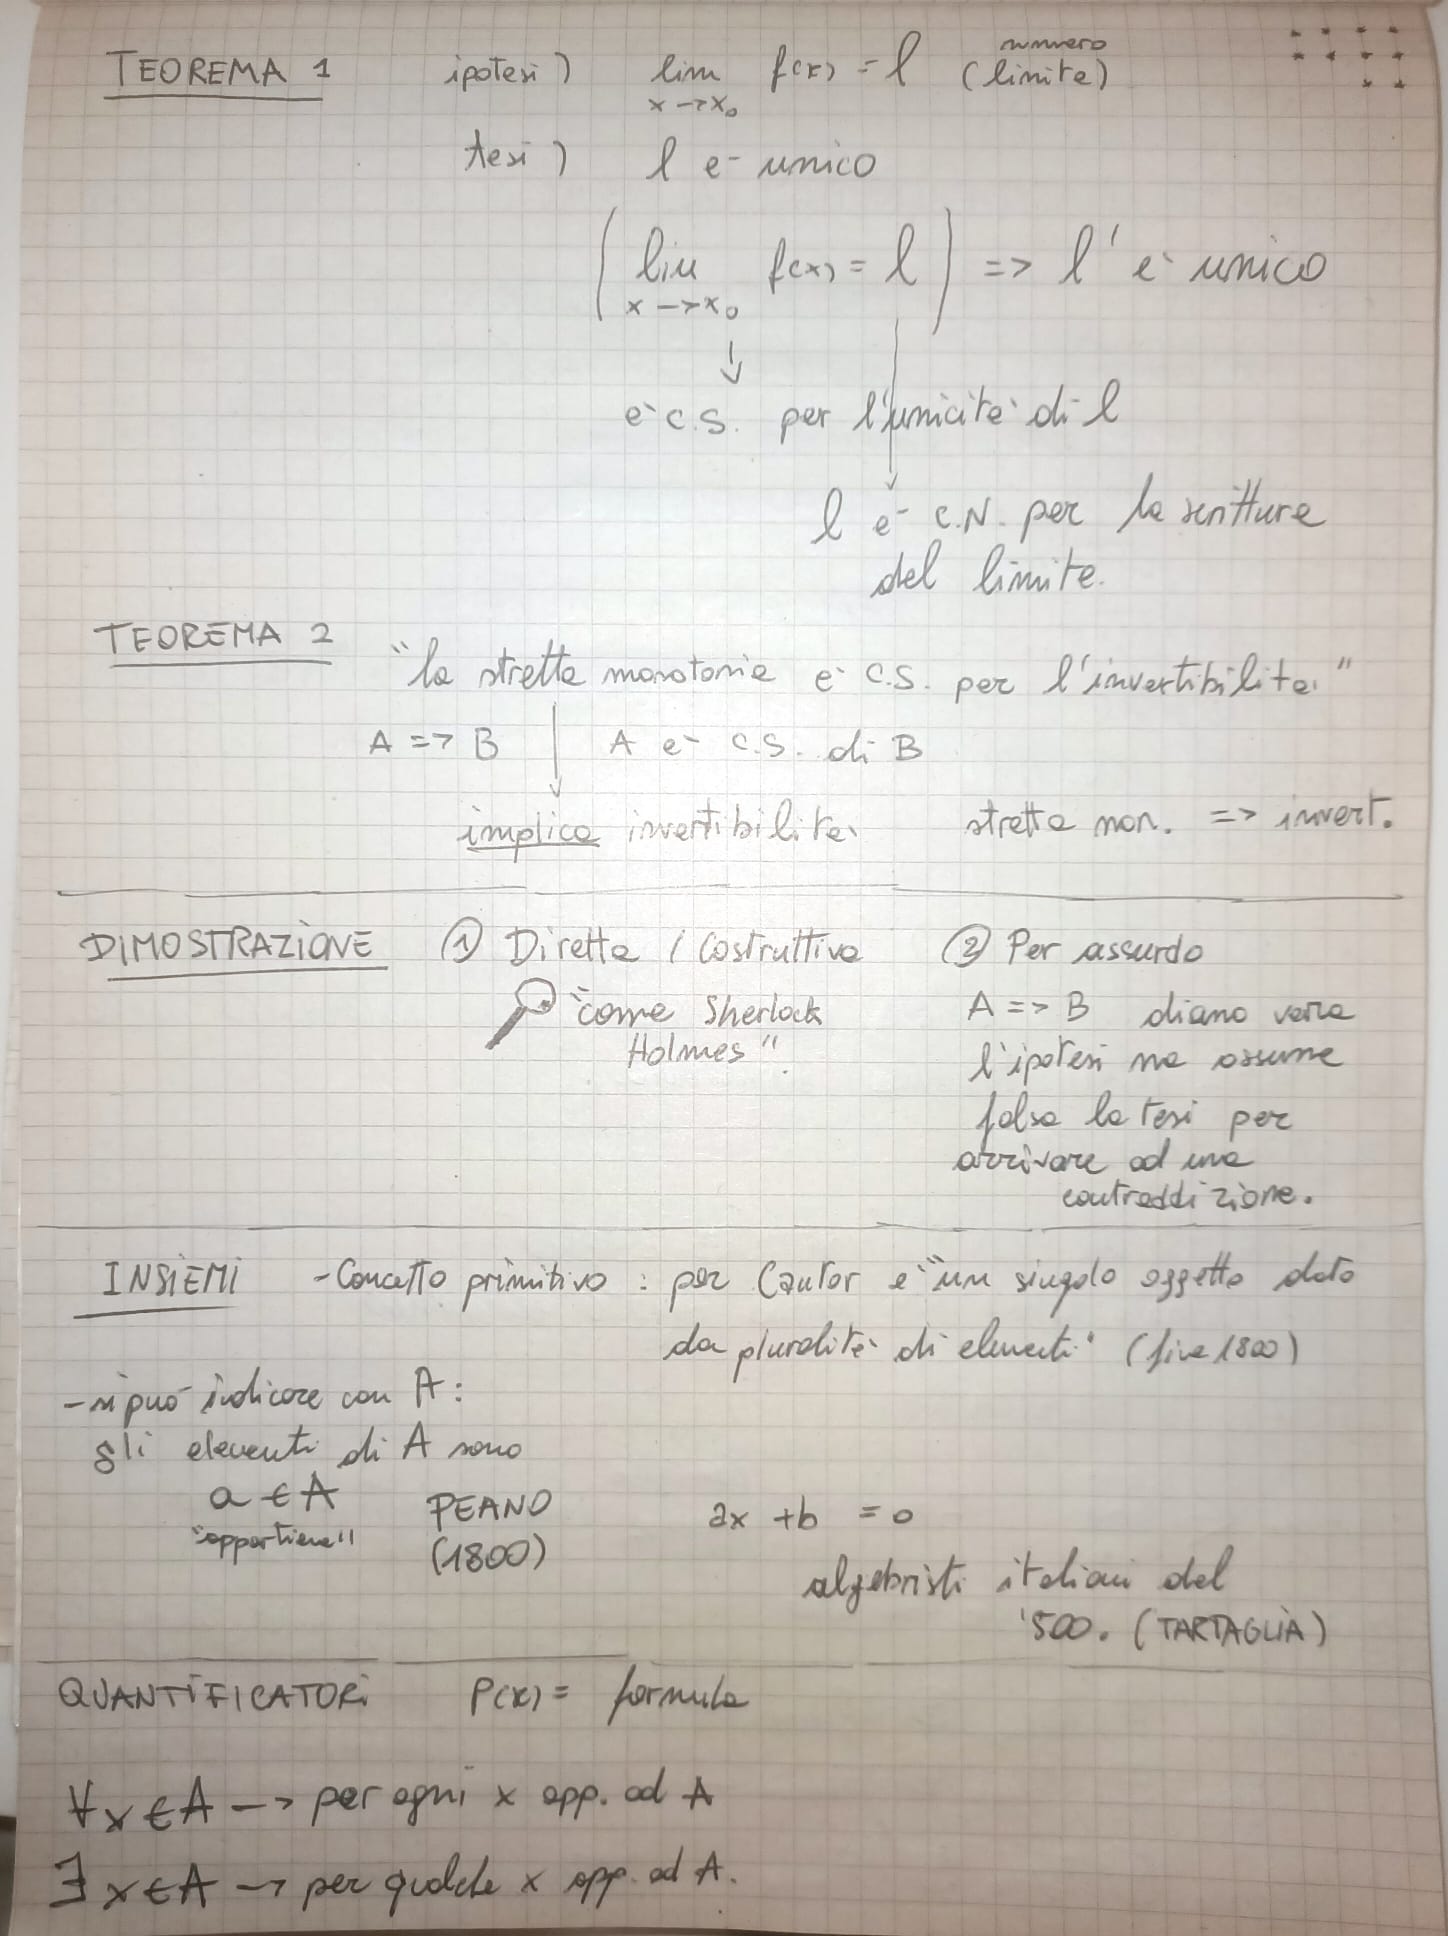 TEOREMA 1 ipotesi) lim f(x) = l (limite)
numero
x→x₀
tesi) l e- unico
(lim f(x) = l) => l' e` unico
x→x₀
↓
e` c.s. per l'unicite` di l
l e- C.N. per la scritture
del limite.
TEOREMA 2
"la stretta monotonia e` C.S. per l'invertibilite."
A => B A e- C.S. di B
implica invertibilite` stretta mon. => invert.
DIMOSTRAZIONE ① Diretta / Costruttiva ② Per assurdo
"come Sherlock
Holmes".
A => B diamo vera
l'ipotesi ma assume
falsa la tesi per
arrivare ad una
contraddizione.
INSIEMI - Concetto primitivo : per Cantor e` "un singolo oggetto dato
da pluralite` di elementi" (fine 1800)
- si può indicare con A:
gli elementi di A sono
a ∈ A PEANO
"appartiene" (1800)
ax + b = 0
algebristi italiani del
'500. (TARTAGLIA)
QUANTIFICATORI P(x) = formula
∀x∈A → per ogni x app. ad A
∃x∈A → per qualche x app. ad A.